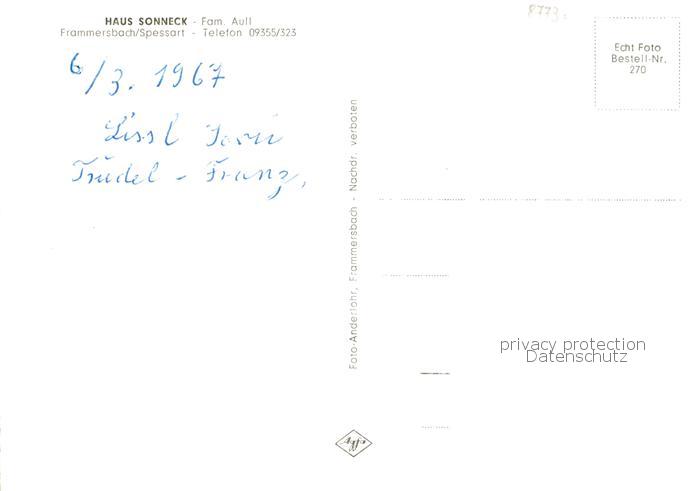 HAUS SONNECK - Fam. Aull
Frammersbach/Spessart - Telefon 09355/323
8773
Echt Foto
Bestell-Nr.
270
6/3. 1967
Lissl
Trudel - Franz,
Foto-Anderlohr, Frammersbach - Nachdr. verboten
privacy protection
Datenschutz
Agfa